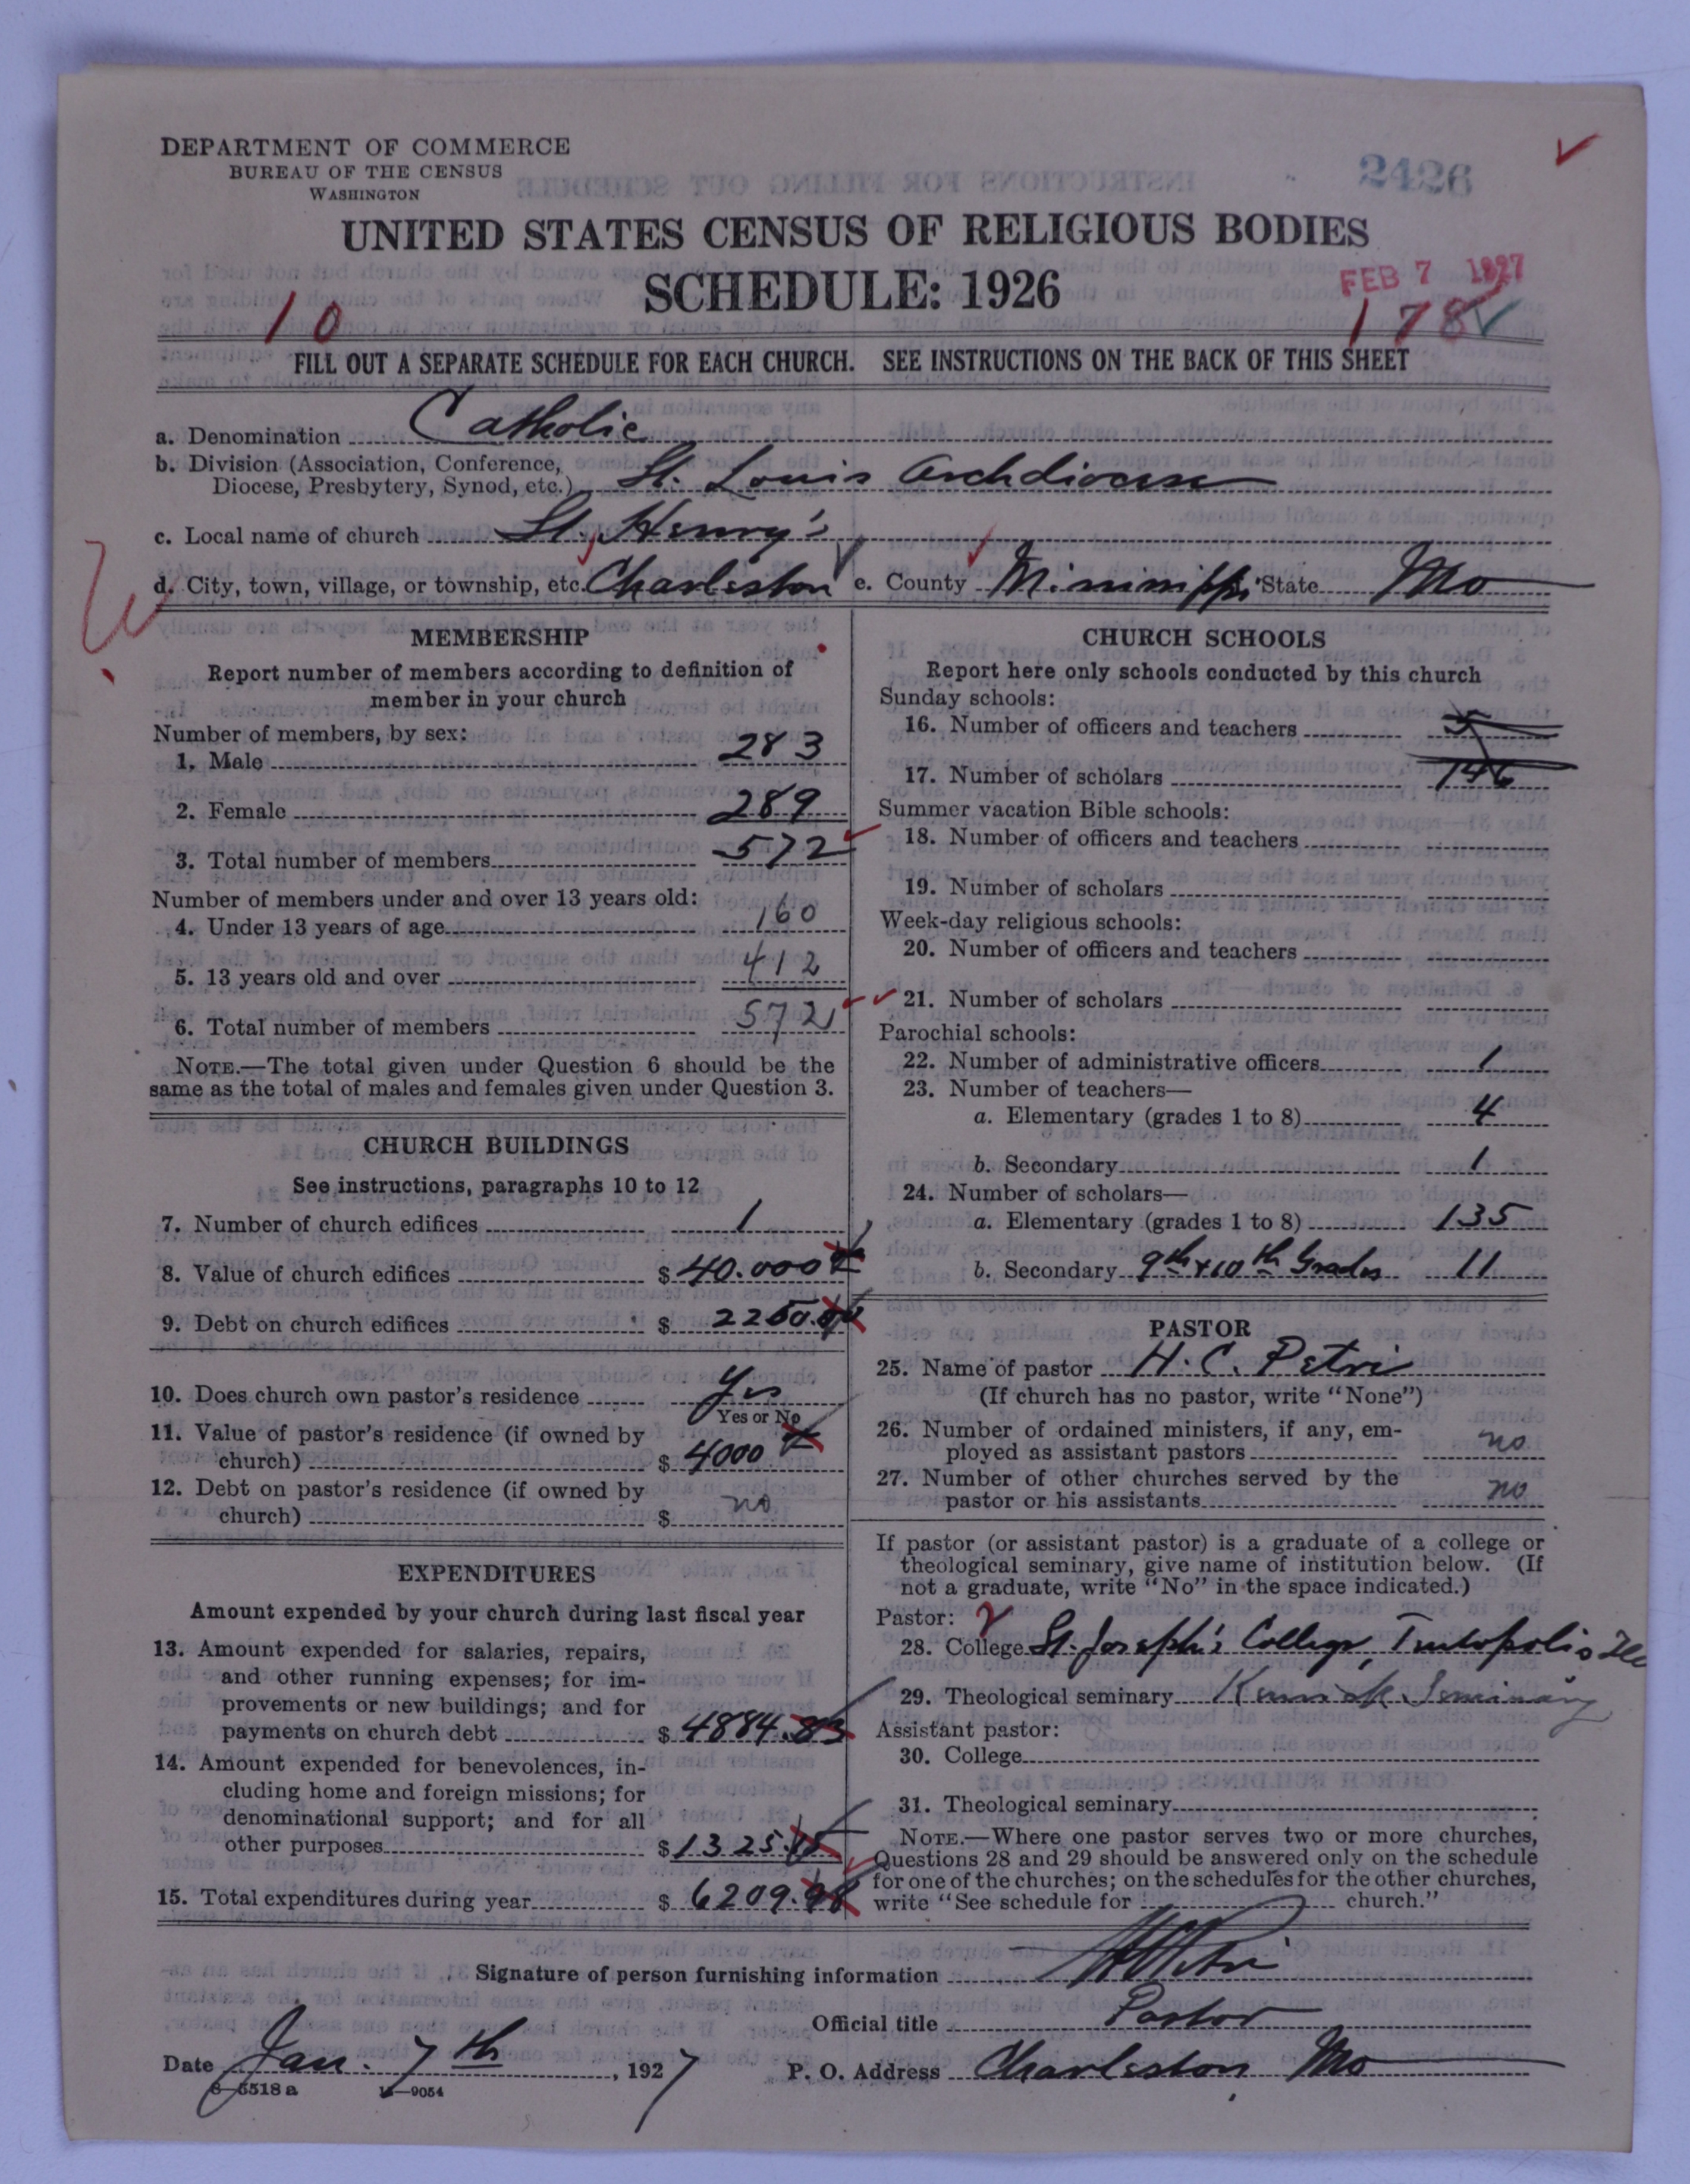 DEPARTMENT OF COMMERCE
BUREAU OF THE CENSUS
WASHINGTON
2426
UNITED STATES CENSUS OF RELIGIOUS BODIES
SCHEDULE: 1926
FEB 7 1927
10
178
FILL OUT A SEPARATE SCHEDULE FOR EACH CHURCH. SEE INSTRUCTIONS ON THE BACK OF THIS SHEET
a. Denomination Catholic
b. Division (Association, Conference, Diocese, Presbytery, Synod, etc.) St. Louis Archdiocese
c. Local name of church St. Henry's
d. City, town, village, or township, etc. Charleston e. County Mississippi State Mo
MEMBERSHIP
Report number of members according to definition of
member in your church
Number of members, by sex:
1. Male 283
2. Female 289
3. Total number of members 572
Number of members under and over 13 years old:
4. Under 13 years of age 160
5. 13 years old and over 412
6. Total number of members 572
NOTE.—The total given under Question 6 should be the
same as the total of males and females given under Question 3.
CHURCH BUILDINGS
See instructions, paragraphs 10 to 12
7. Number of church edifices 1
8. Value of church edifices $ 40.000
9. Debt on church edifices $ 2250.00
10. Does church own pastor's residence Yes
Yes or No
11. Value of pastor's residence (if owned by
church) $ 4000
12. Debt on pastor's residence (if owned by
church) $ no
EXPENDITURES
Amount expended by your church during last fiscal year
13. Amount expended for salaries, repairs,
and other running expenses; for im-
provements or new buildings; and for
payments on church debt $ 4884.83
14. Amount expended for benevolences, in-
cluding home and foreign missions; for
denominational support; and for all
other purposes $ 1325.15
15. Total expenditures during year $ 6209.98
CHURCH SCHOOLS
Report here only schools conducted by this church
Sunday schools:
16. Number of officers and teachers 5
17. Number of scholars 146
Summer vacation Bible schools:
18. Number of officers and teachers
19. Number of scholars
Week-day religious schools:
20. Number of officers and teachers
21. Number of scholars
Parochial schools:
22. Number of administrative officers 1
23. Number of teachers—
a. Elementary (grades 1 to 8) 4
b. Secondary 1
24. Number of scholars—
a. Elementary (grades 1 to 8) 135
b. Secondary 9th + 10th Grades 11
PASTOR
25. Name of pastor H. C. Petri
(If church has no pastor, write "None")
26. Number of ordained ministers, if any, em-
ployed as assistant pastors no
27. Number of other churches served by the
pastor or his assistants no
If pastor (or assistant pastor) is a graduate of a college or
theological seminary, give name of institution below. (If
not a graduate, write "No" in the space indicated.)
Pastor:
28. College St. Joseph's College, Teutopolis Ill
29. Theological seminary Kenrick Seminary
Assistant pastor:
30. College
31. Theological seminary
NOTE.—Where one pastor serves two or more churches,
Questions 28 and 29 should be answered only on the schedule
for one of the churches; on the schedules for the other churches,
write "See schedule for church."
Signature of person furnishing information HC Petri
Official title Pastor
Date Jan. 7th, 1927 P. O. Address Charleston Mo
8—5518 a 11—9054